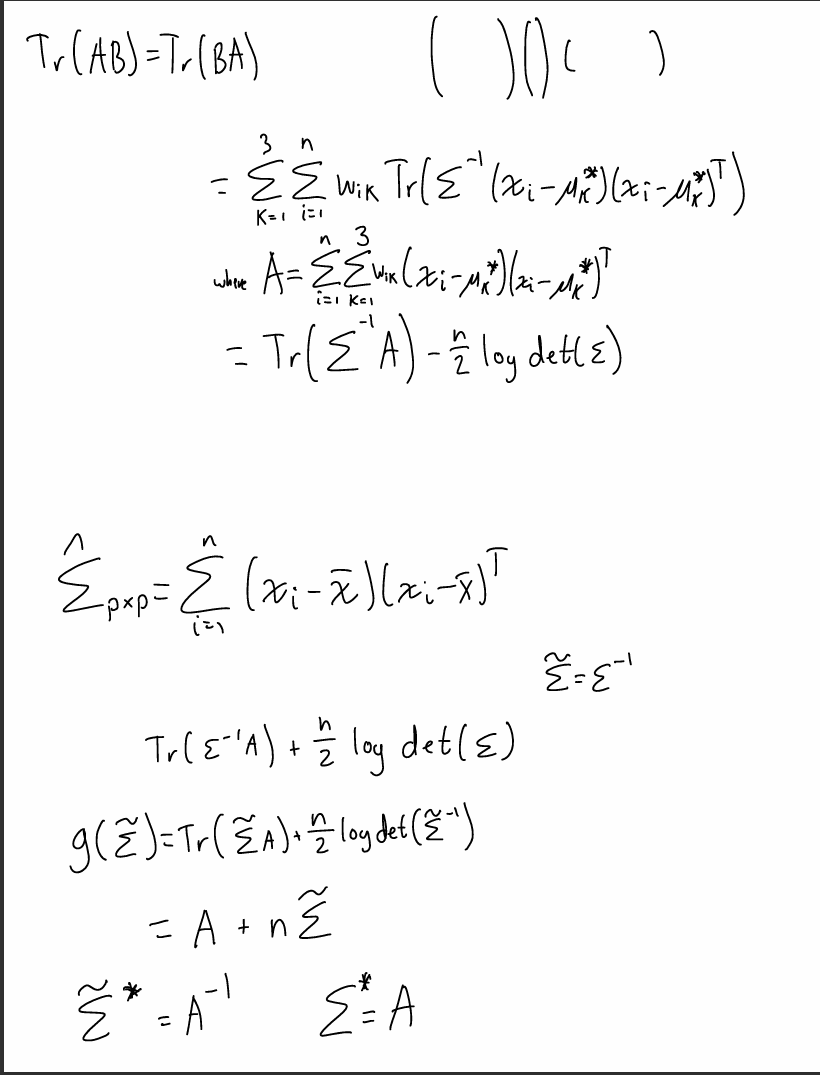 Tr(AB)=Tr(BA) ( )()( )
= Σ_{K=1}^{3} Σ_{i=1}^{n} w_{iK} Tr(Σ^{-1}(x_i-μ_K^*)(x_i-μ_K^*)^T)
where A= Σ_{i=1}^{n} Σ_{K=1}^{3} w_{iK}(x_i-μ_K^*)(x_i-μ_K^*)^T
= Tr(Σ^{-1}A) - n/2 log det(Σ)
Σ̂_{p×p} = Σ_{i=1}^{n} (x_i-x̄)(x_i-x̄)^T
Σ̃=Σ^{-1}
Tr(Σ^{-1}A) + n/2 log det(Σ)
g(Σ̃)=Tr(Σ̃A)+n/2 log det(Σ̃^{-1})
= A + nΣ̃
Σ̃^* = A^{-1} Σ^* = A